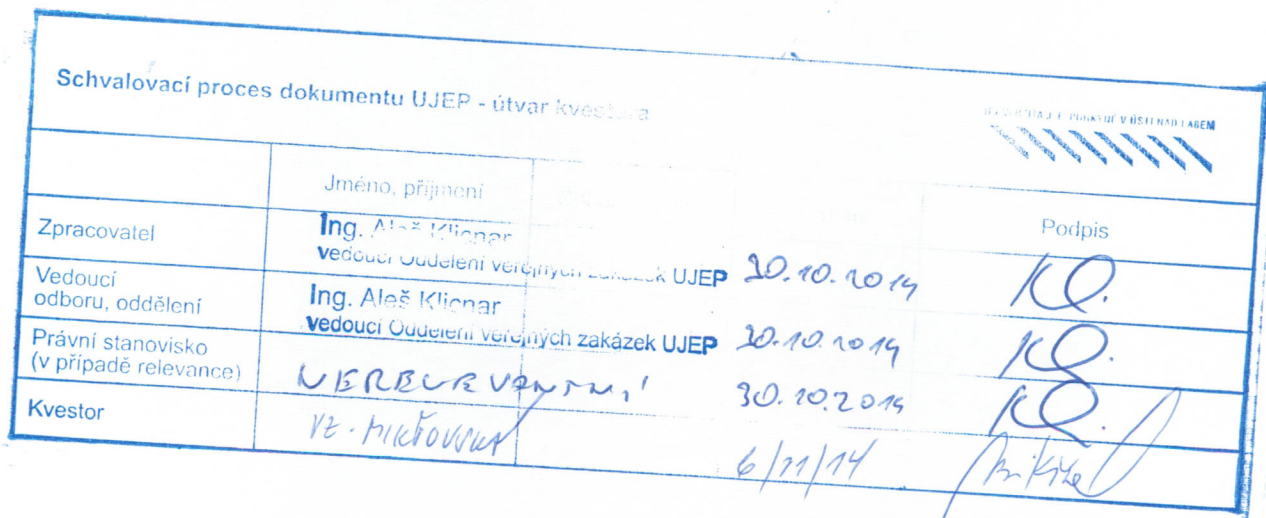 Schvalovací proces dokumentu UJEP - útvar kvestora
V ÚSTÍ NAD LABEM
Jméno, příjmení
Podpis
Zpracovatel
Ing. Aleš Klicnar
vedoucí Oddělení veřejných zakázek UJEP
30.10.2014
Vedoucí
odboru, oddělení
Ing. Aleš Klicnar
vedoucí Oddělení veřejných zakázek UJEP
30.10.2014
Právní stanovisko
(v případě relevance)
30.10.2014
Kvestor
6/11/14